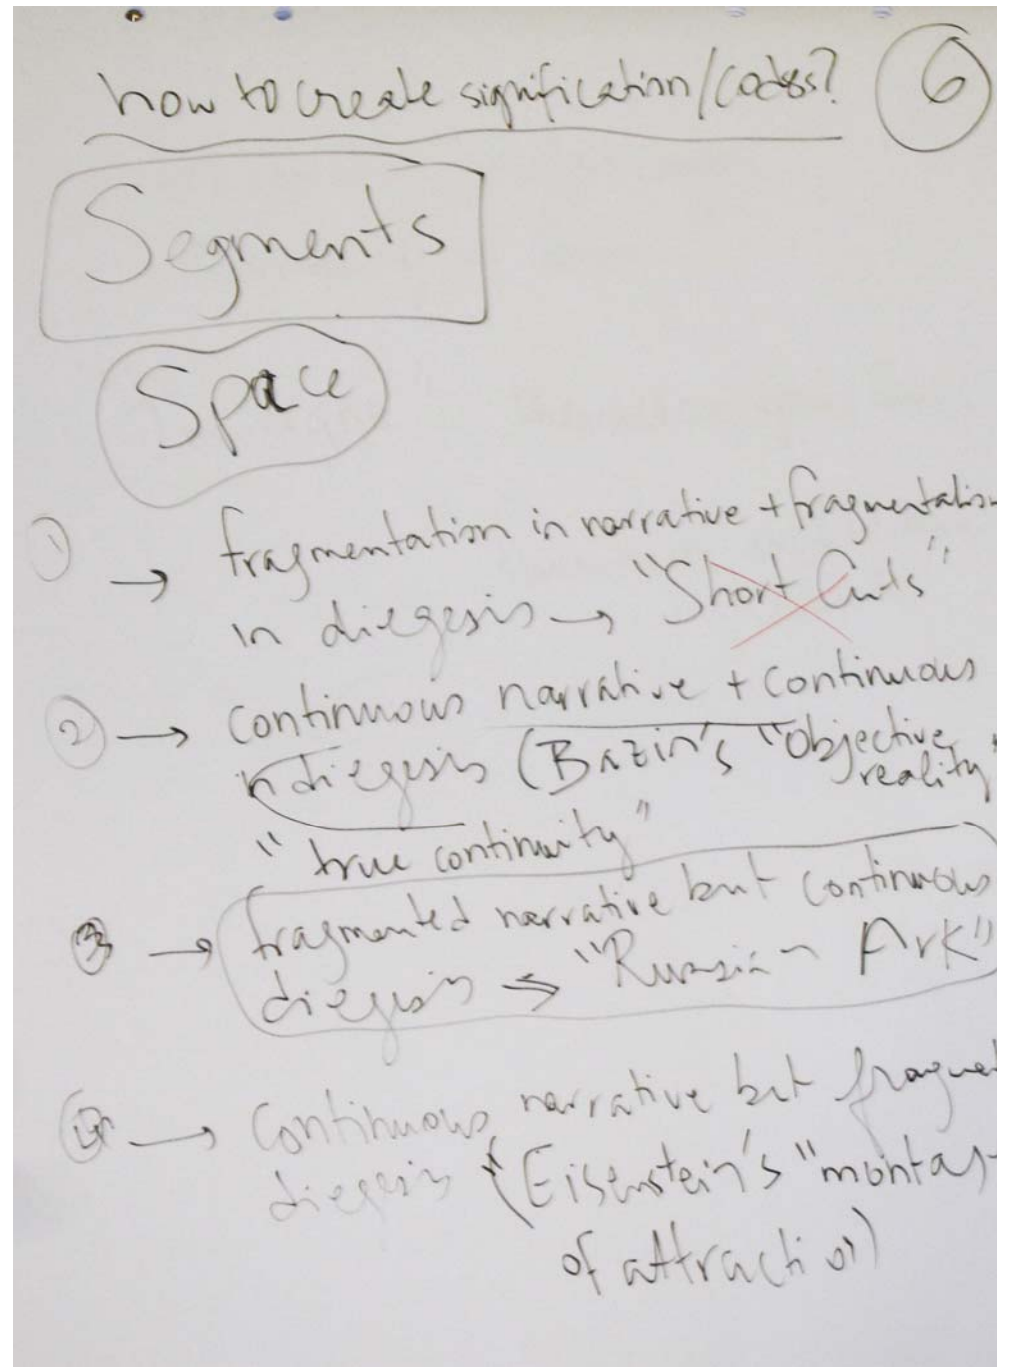 how to create signification/codes? 6
Segments
Space
1 → fragmentation in narrative + fragmentatio
in diegesis → "Short Cuts"
2 → continuous narrative + continuous
in diegesis (Bazin's "objective
reality"
"true continuity"
3 → fragmented narrative but continuous
diegesis → "Russian Ark"
4 → Continuous narrative but fragme
diegesis (Eisenstein's "montag
of attraction)